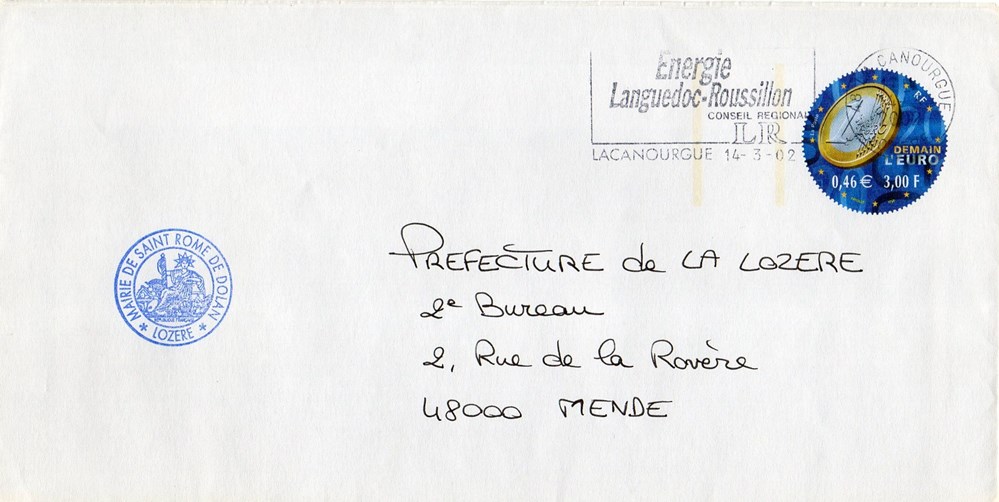 Energie
Languedoc-Roussillon
CONSEIL REGIONAL
LR
LACANOURGUE 14-3-02
CANOURGUE
RF
DEMAIN
L'EURO
0,46 € 3,00 F
MAIRIE DE SAINT ROME DE DOLAN
* LOZERE *
REPUBLIQUE FRANÇAISE
PREFECTURE de LA LOZERE
2e Bureau
2, Rue de la Rovère
48000 MENDE